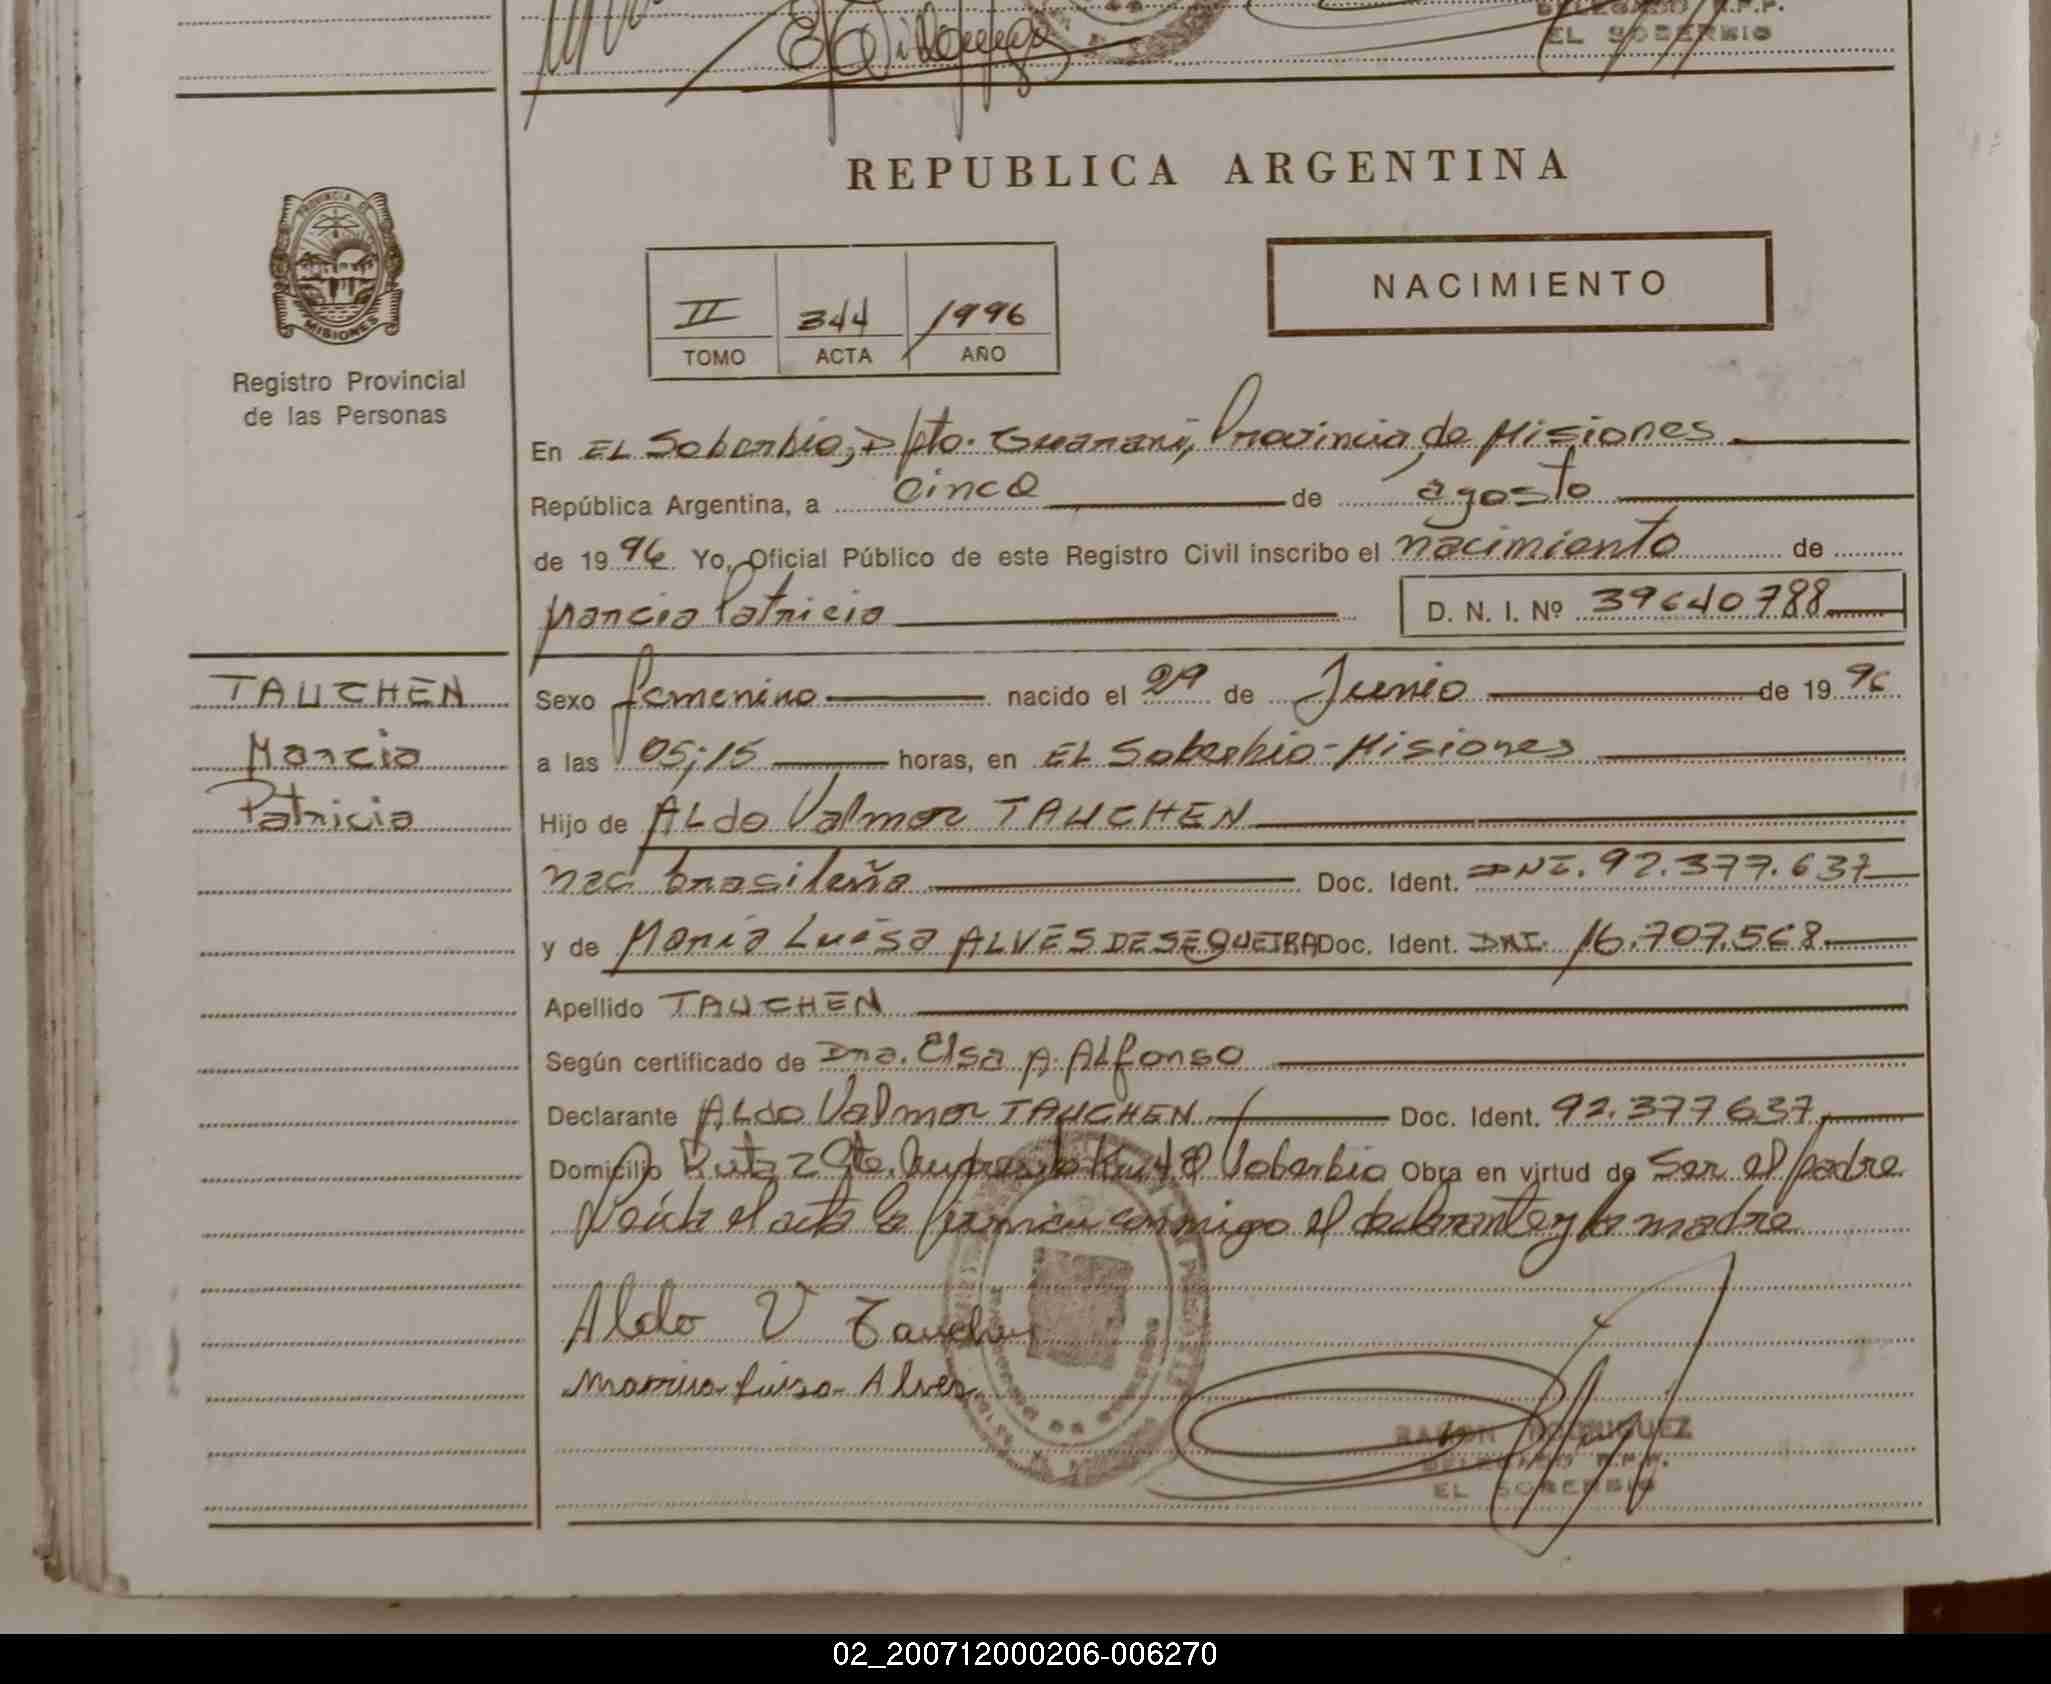 DELEGADO R.P.P.
EL SOBERBIO
REPUBLICA ARGENTINA
PROVINCIA DE
MISIONES
NACIMIENTO
II 344 1996
TOMO ACTA AÑO
Registro Provincial
de las Personas
En EL Soberbio, Dpto. Guarani, Provincia de Misiones
República Argentina, a cinco de agosto
de 1996 Yo, Oficial Público de este Registro Civil inscribo el nacimiento de
Marcia Patricia D. N. I. Nº 39640788
TAUCHEN
Marcia
Patricia
Sexo femenino nacido el 29 de Junio de 1996
a las 05;15 horas, en EL Soberbio-Misiones
Hijo de ALdo Valmor TAUCHEN
nac brasileña Doc. Ident. DNI. 92.377.637
y de Maria Luisa ALVES DE SEQUEIRA Doc. Ident. DNI. 16.707.568
Apellido TAUCHEN
Según certificado de Dra. Elsa A. ALfonso
Declarante ALdo Valmor TAUCHEN Doc. Ident. 92.377637
Domicilio Ruta 2 Soberbio Obra en virtud de Ser el padre
Leida el acta la firman conmigo el declarante y la madre
Aldo V Tauchen
Marria Luisa Alves
RAMON RODRIGUEZ
DELEGADO R.P.P.
EL SOBERBIO
02_200712000206-006270